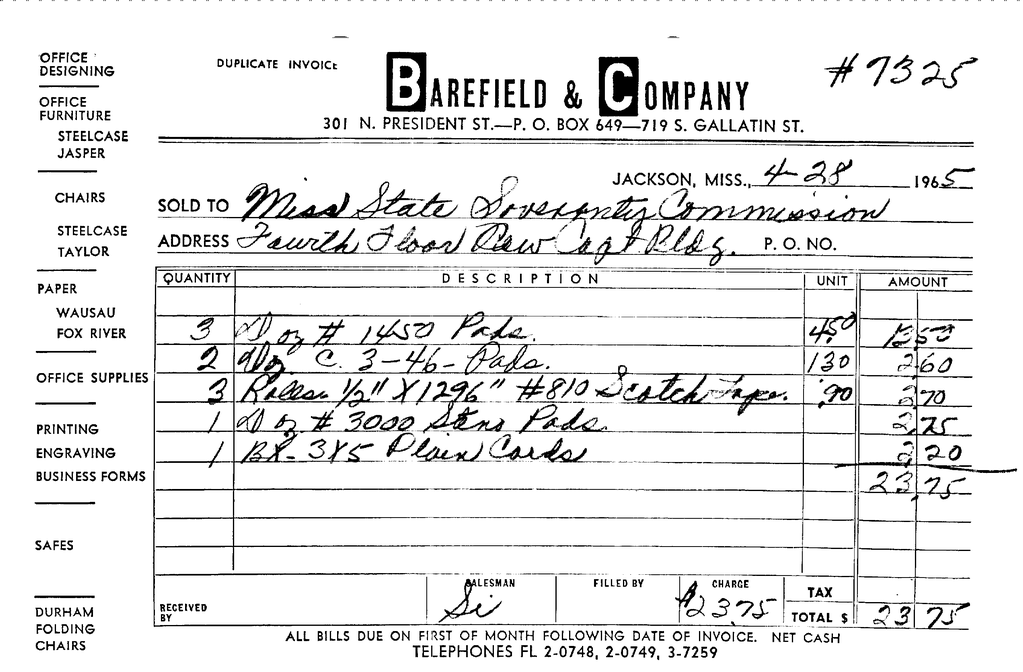 OFFICE
DESIGNING
OFFICE
FURNITURE
STEELCASE
JASPER
CHAIRS
STEELCASE
TAYLOR
PAPER
WAUSAU
FOX RIVER
OFFICE SUPPLIES
PRINTING
ENGRAVING
BUSINESS FORMS
SAFES
DURHAM
FOLDING
CHAIRS
DUPLICATE INVOICE
#7325
BAREFIELD & COMPANY
301 N. PRESIDENT ST.—P. O. BOX 649—719 S. GALLATIN ST.
JACKSON, MISS., 4-28 1965
SOLD TO Miss State Soveronty Commission
ADDRESS Fourth Floor New Capt Bldg. P. O. NO.
QUANTITY DESCRIPTION UNIT AMOUNT
3 Doz # 1450 Pads. 4.50 13 50
2 Doz. C. 3-46- Pads. 1 30 2 60
3 Rolls. 1/2" X 1296" #810 Scotch Tape. .90 2 70
1 Doz # 3000 Steno Pads. 2.75
1 BX- 3X5 Plain Cards 2 20
23.75
RECEIVED BY SALESMAN Si FILLED BY CHARGE $23.75 TAX
TOTAL $ 23 75
ALL BILLS DUE ON FIRST OF MONTH FOLLOWING DATE OF INVOICE. NET CASH
TELEPHONES FL 2-0748, 2-0749, 3-7259